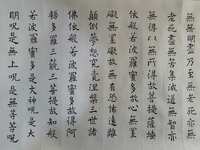 無無明盡乃至無老死亦無
老死盡無苦集滅道無智亦
無得以無所得故菩提薩埵
依般若波羅蜜多故心無罣
礙無罣礙故無有恐怖遠離
顛倒夢想究竟涅槃三世諸
佛依般若波羅蜜多故得阿
耨多羅三藐三菩提故知般
若波羅蜜多是大神呪是大
明呪是無上呪是無等等呪